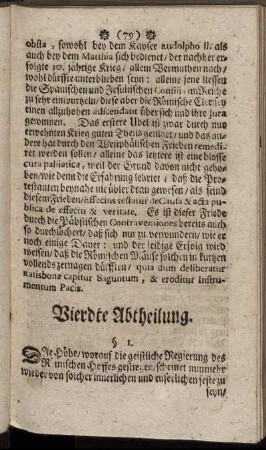 ❀ (79) ❀
obsta, sowohl bey dem Kayser Rudolpho II. als
auch bey dem Matthia sich bedienet / der nachher er-
folgte 30. jährige Krieg / allem Vermuthen nach/
wohl dürffte unterblieben seyn: alleine jene liessen
die Spanischen und Jesuitischen Consilia im Reiche
zu sehr einwurtzeln / diese aber die Römische Clerisey
einen allzuhohen ascendant über sich und ihre Jura
gewinnen. Das erstere Ubel ist zwar durch nur
erwehnten Krieg guten Theils getilget / und das an-
dere hat durch den Westphälischen Frieden remedi-
ret werden sollen / alleine das letztere ist eine blosse
cura palliativa, weil der Grund davon nicht geho-
ben / wie denn die Erfahrung lehret / daß die Pro-
testanten beynahe nie übler dran gewesen / als seind
diesem Frieden / Effectus testatur de Causa & acta pu-
blica de effectu & veritate. Es ist dieser Friede
durch die Päbstischen Contraventiones bereits auch
so durchlöchert / daß sich nur zu verwundern / wie er
noch einige Dauer: und der leidige Erfolg wird
weisen / daß die Römischen Mäuse solchen in kurtzen
vollends zernagen dürfften / quia dum deliberatur
Ratisbonæ capitur Saguntum, & eroditur Instru-
mentum Pacis.
Vierdte Abtheilung.
§ 1.
DIe Höhe / worauf die geistliche Regierung des
Römischen Hoffes gestiegen / scheinet nunmehr
wieder von solcher innerlichen und euserlichen feste zu
seyn/